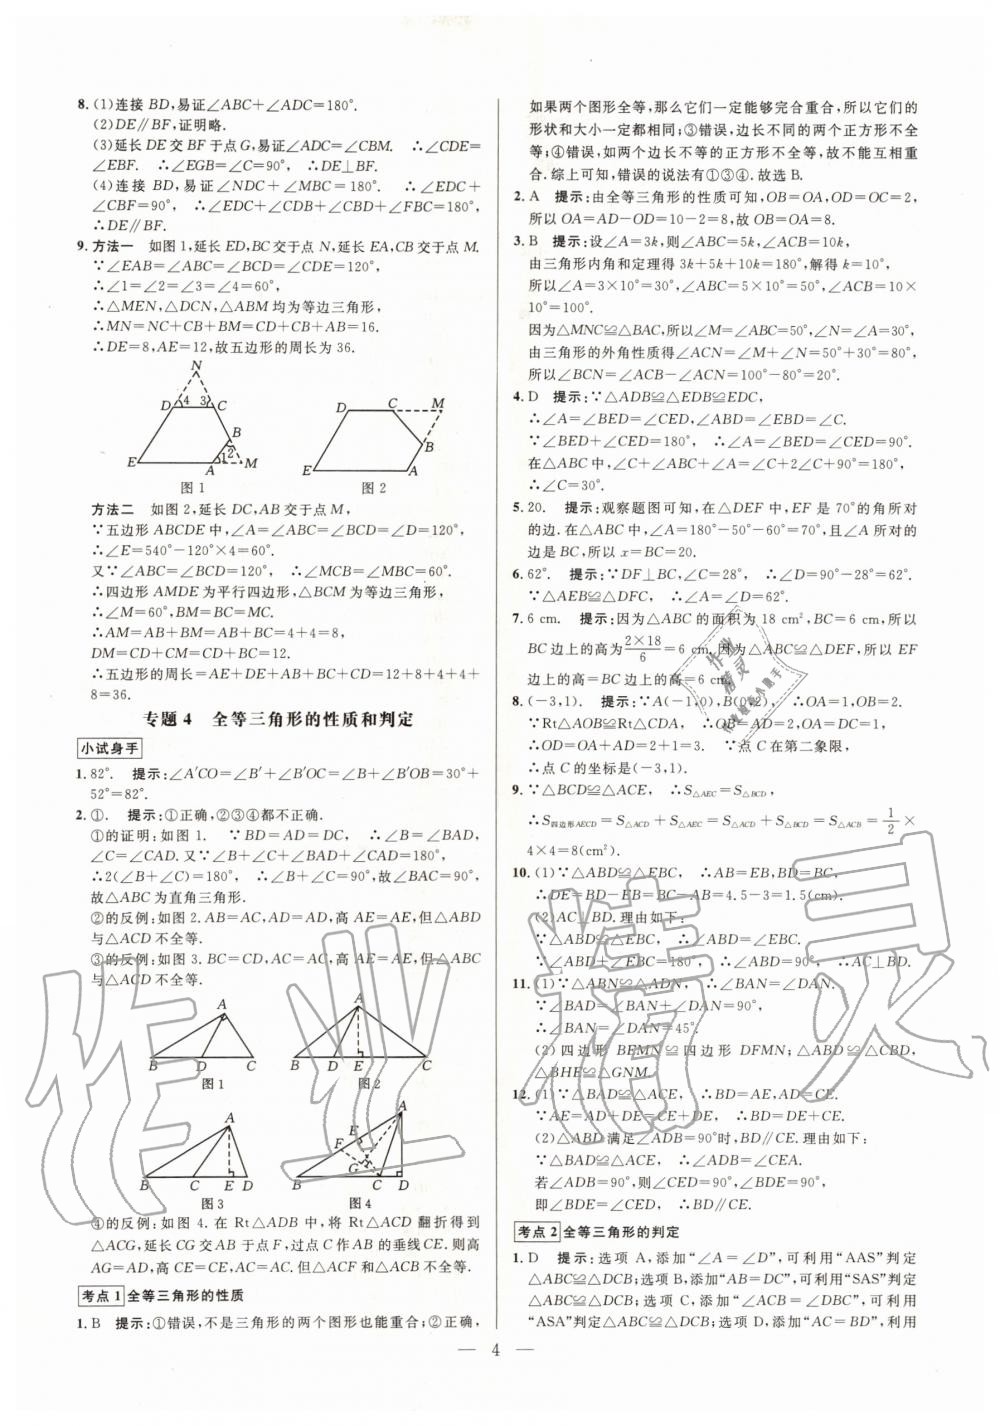 8. (1)连接 BD,易证∠ABC+∠ADC=180°.
(2)DE∥BF,证明略.
(3)延长 DE 交 BF 于点 G,易证∠ADC=∠CBM. ∴∠CDE=
∠EBF. ∴∠EGB=∠C=90°, ∴DE⊥BF.
(4)连接 BD,易证∠NDC+∠MBC=180°. ∴∠EDC+
∠CBF=90°, ∴∠EDC+∠CDB+∠CBD+∠FBC=180°,
∴DE∥BF.
9. 方法一 如图 1,延长 ED,BC 交于点 N,延长 EA,CB 交于点 M.
∵∠EAB=∠ABC=∠BCD=∠CDE=120°,
∴∠1=∠2=∠3=∠4=60°,
∴△MEN,△DCN,△ABM 均为等边三角形,
∴MN=NC+CB+BM=CD+CB+AB=16.
∴DE=8,AE=12,故五边形的周长为 36.
N
D 4 3 C
B
2
E A 1 M
图 1
D C M
B
E A
图 2
方法二 如图 2,延长 DC,AB 交于点 M,
∵五边形 ABCDE 中,∠A=∠ABC=∠BCD=∠D=120°,
∴∠E=540°-120°×4=60°.
又∵∠ABC=∠BCD=120°, ∴∠MCB=∠MBC=60°,
∴四边形 AMDE 为平行四边形,△BCM 为等边三角形,
∴∠M=60°,BM=BC=MC.
∴AM=AB+BM=AB+BC=4+4=8,
DM=CD+CM=CD+BC=12.
∴五边形的周长=AE+DE+AB+BC+CD=12+8+4+4+
8=36.
专题 4 全等三角形的性质和判定
小试身手
1. 82°. 提示:∠A′CO=∠B′+∠B′OC=∠B+∠B′OC=30°+
52°=82°.
2. ①. 提示:①正确,②③④都不正确.
①的证明:如图 1. ∵BD=AD=DC, ∴∠B=∠BAD,
∠C=∠CAD. 又∵∠B+∠C+∠BAD+∠CAD=180°,
∴2(∠B+∠C)=180°, 故∠BAC=90°,
故△ABC 为直角三角形.
②的反例:如图 2. AB=AC,AD=AD,高 AE=AE,但△ABD
与△ACD 不全等.
③的反例:如图 3. BC=CD,AC=AC,高 AE=AE,但△ABC
与△ACD 不全等.
A
B D C
图 1
A
B D E C
图 2
A
B C E D
图 3
A
E
F
H
G
B C D
图 4
④的反例:如图 4. 在 Rt△ADB 中,将 Rt△ACD 翻折得到
△ACG,延长 CG 交 AB 于点 F,过点 C 作 AB 的垂线 CE. 则高
AG=AD,高 CE=CE,AC=AC. 但△ACF 和△ACB 不全等.
考点 1 全等三角形的性质
1. B 提示:①错误,不是三角形的两个图形也能重合;②正确,
如果两个图形全等,那么它们一定能够完合重合,所以它们的
形状和大小一定都相同;③错误,边长不同的两个正方形不全
等;④错误,如两个边长不等的正方形不全等,故不能互相重
合. 综上可知,错误的说法有①③④. 故选 B.
2. A 提示:由全等三角形的性质可知,OB=OA,OD=OC=2,
所以 OA=AD-OD=10-2=8,故 OB=OA=8.
3. B 提示:设∠A=3k,则∠ABC=5k,∠ACB=10k,
由三角形内角和定理得 3k+5k+10k=180°,解得 k=10°,
所以∠A=3×10°=30°,∠ABC=5×10°=50°,∠ACB=10×
10°=100°.
因为△MNC≌△BAC,所以∠M=∠ABC=50°,∠N=∠A=30°,
由三角形的外角性质得∠ACN=∠M+∠N=50°+30°=80°,
所以∠BCN=∠ACB-∠ACN=100°-80°=20°.
4. D 提示:∵△ADB≌△EDB≌EDC,
∴∠A=∠BED=∠CED,∠ABD=∠EBD=∠C.
∵∠BED+∠CED=180°, ∴∠A=∠BED=∠CED=90°.
在△ABC 中,∠C+∠ABC+∠A=∠C+2∠C+90°=180°,
∴∠C=30°.
5. 20. 提示:观察题图可知,在△DEF 中,EF 是 70°的角所对
的边. 在△ABC 中,∠A=180°-50°-60°=70°,且∠A 所对的
边是 BC,所以 x=BC=20.
6. 62°. 提示:∵DF⊥BC,∠C=28°, ∴∠D=90°-28°=62°.
∵△AEB≌△DFC, ∴∠A=∠D=62°.
7. 6 cm. 提示:因为△ABC 的面积为 18 cm²,BC=6 cm,所以
BC 边上的高为2×18/6=6 cm. 因为△ABC≌△DEF,所以 EF
边上的高=BC 边上的高=6 cm.
8. (-3,1). 提示:∵A(-1,0),B(0,2), ∴OA=1,OB=2.
∵Rt△AOB≌Rt△CDA, ∴OB=AD=2,OA=DC=1,
∴OD=OA+AD=2+1=3. ∵点 C 在第二象限,
∴点 C 的坐标是(-3,1).
9. ∵△BCD≌△ACE, ∴S△AEC=S△BCD,
∴S四边形AECD=S△ACD+S△AEC=S△ACD+S△BCD=S△ACB=1/2×
4×4=8(cm²).
10. (1)∵△ABD≌△EBC, ∴AB=EB,BD=BC,
∴DE=BD-EB=BC-AB=4.5-3=1.5(cm).
(2)AC⊥BD. 理由如下:
∵△ABD≌△EBC, ∴∠ABD=∠EBC.
∵∠ABD+∠EBC=180°, ∴∠ABD=90°, ∴AC⊥BD.
11. (1)∵△ABN≌△ADN, ∴∠BAN=∠DAN.
∵∠BAD=∠BAN+∠DAN=90°,
∴∠BAN=∠DAN=45°.
(2)四边形 BEMN≌四边形 DFMN;△ABD≌△CBD,
△BHE≌△GNM.
12. (1)∵△BAD≌△ACE, ∴BD=AE,AD=CE.
∵AE=AD+DE=CE+DE, ∴BD=DE+CE.
(2)△ABD 满足∠ADB=90°时,BD∥CE. 理由如下:
∵△BAD≌△ACE, ∴∠ADB=∠CEA.
若∠ADB=90°,则∠CEA=90°,∠BDE=90°,
即∠BDE=∠CED, ∴BD∥CE.
考点 2 全等三角形的判定
1. D 提示:选项 A,添加“∠A=∠D”,可利用“AAS”判定
△ABC≌△DCB;选项 B,添加“AB=DC”,可利用“SAS”判定
△ABC≌△DCB;选项 C,添加“∠ACB=∠DBC”,可利用
“ASA”判定△ABC≌△DCB;选项 D,添加“AC=BD”,利用
— 4 —
作业精灵